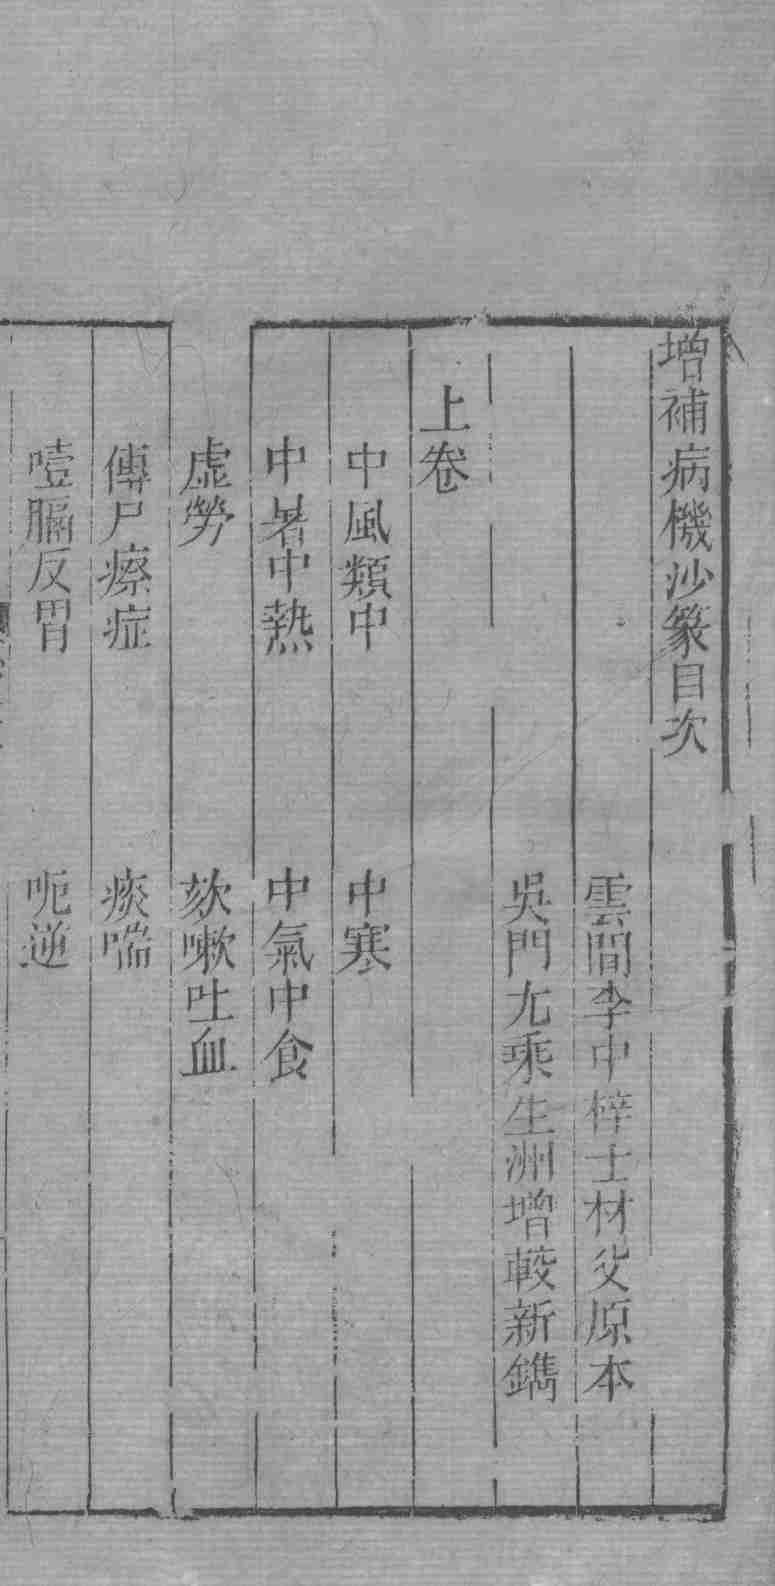 增補病機沙篆目次
雲間李中梓士材父原本
吳門尤乘生洲增較新鐫
上卷
中風類中　中寒
中暑中熱　中氣中食
虛勞　欬嗽吐血
傳尸瘵症　痰喘
噎膈反胃　呃逆